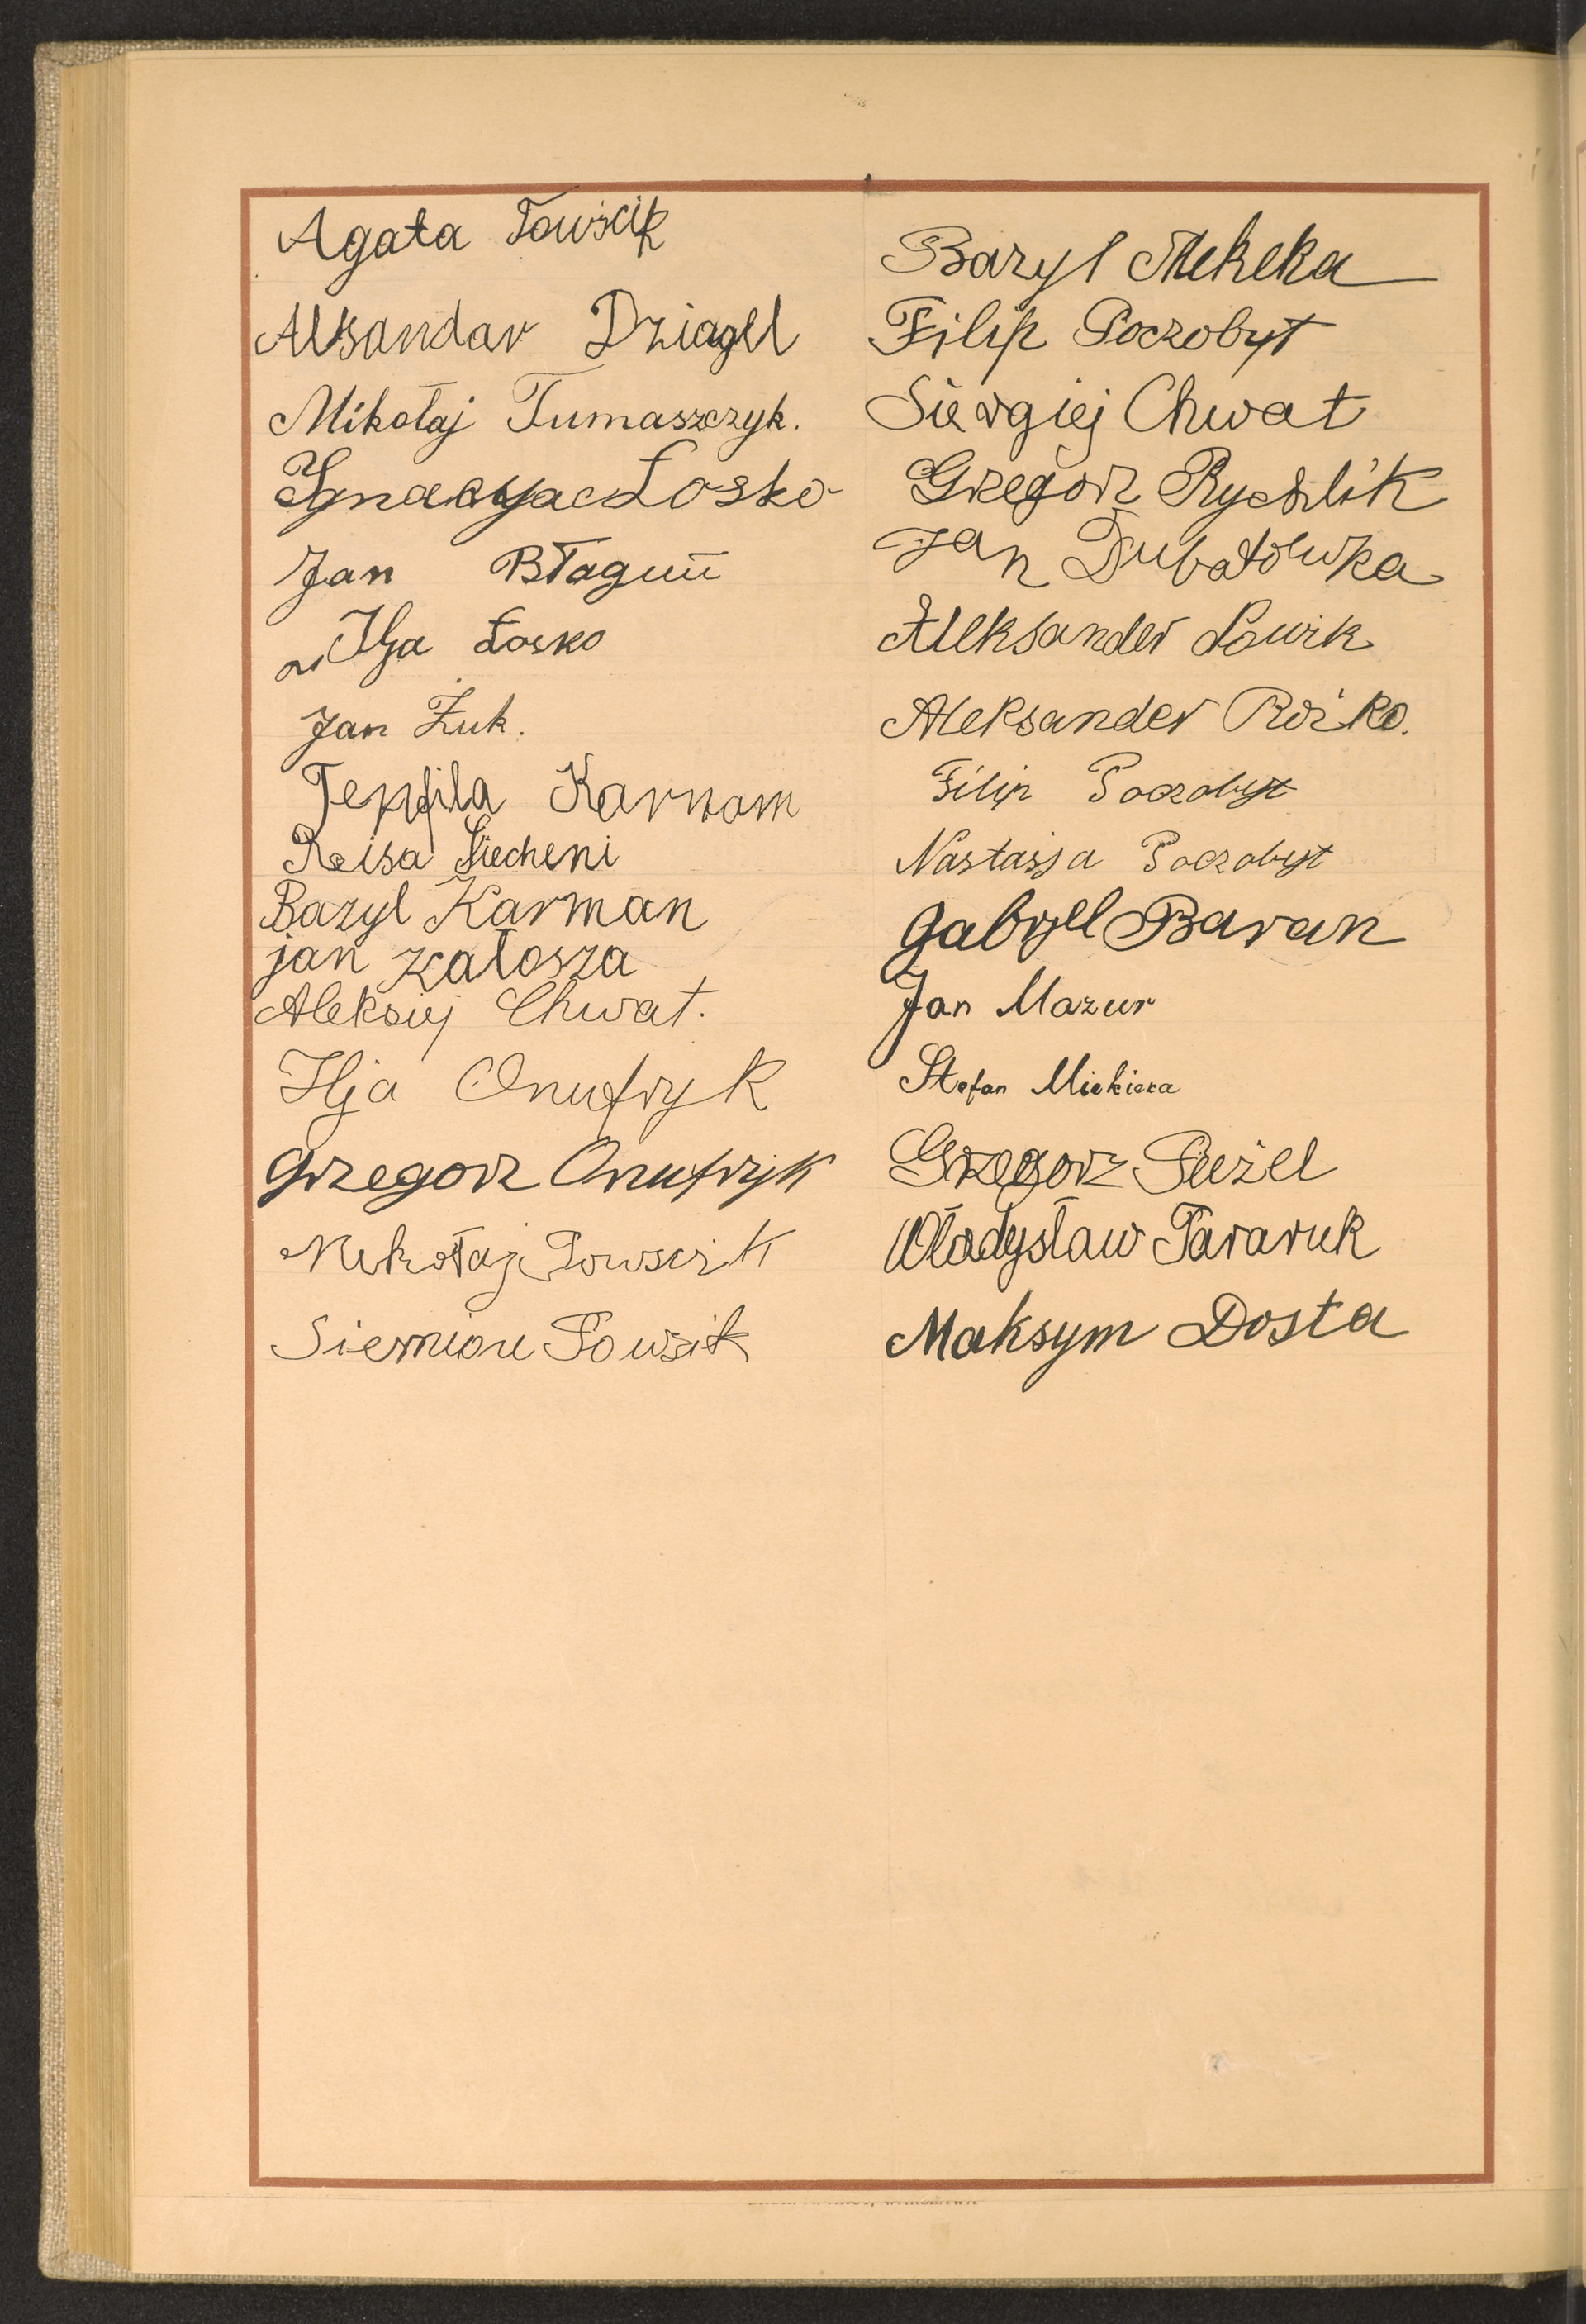 Agata Towścik
Alksandar Dziagel
Mikołaj Tumaszczyk.
Ignacy Łosko
Jan Błagun
Ilja Łosko
Jan Żuk.
Karnam
Raisa Siecheni
Bazyl Karman
jan Kałosza
Aleksiej Chwat.
Ilja Onufryk
Grzegorz Onufryk
Mikołaj Powscik
Siemion Powsik
Bazyl Mekeka
Filip Poczobyt
Siergiej Chwat
Gregorz Rychlik
Jan Dubatówka
Aleksander
Aleksander Rośko.
Filip Poczobyt
Nastassja Poczobyt
Gabryel Baran
Jan Mazur
Stefan Miekieka
Grzegorz
Władysław Tararuk
Maksym Dosta